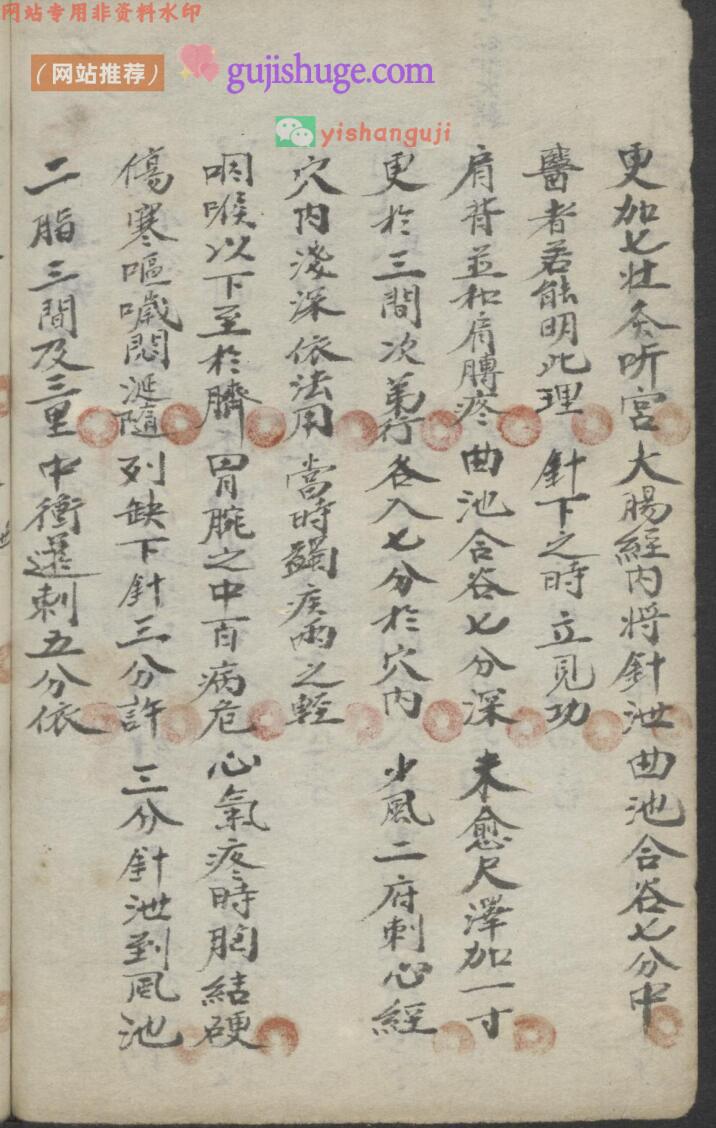 网站专用非资料水印
（网站推荐） gujishuge.com
yishanguji
更加七壮灸听宫 大腸經内将針泄 曲池合谷七分中
醫者若能明此理 針下之時立見功
肩背並和肩膊疼 曲池合谷七分深 未愈尺澤加一寸
更於三間次弟行 各入七分於穴内 少風二府刺心經
穴内淺深依法用 當時蠲疾兩之輕
咽喉以下至於臍 胃腕之中百病危 心氣疼時胸結硬
傷寒嘔噦悶涎隨 列缺下針三分許 三分針泄到風池
二脂三間及三里 中衝還刺五分依